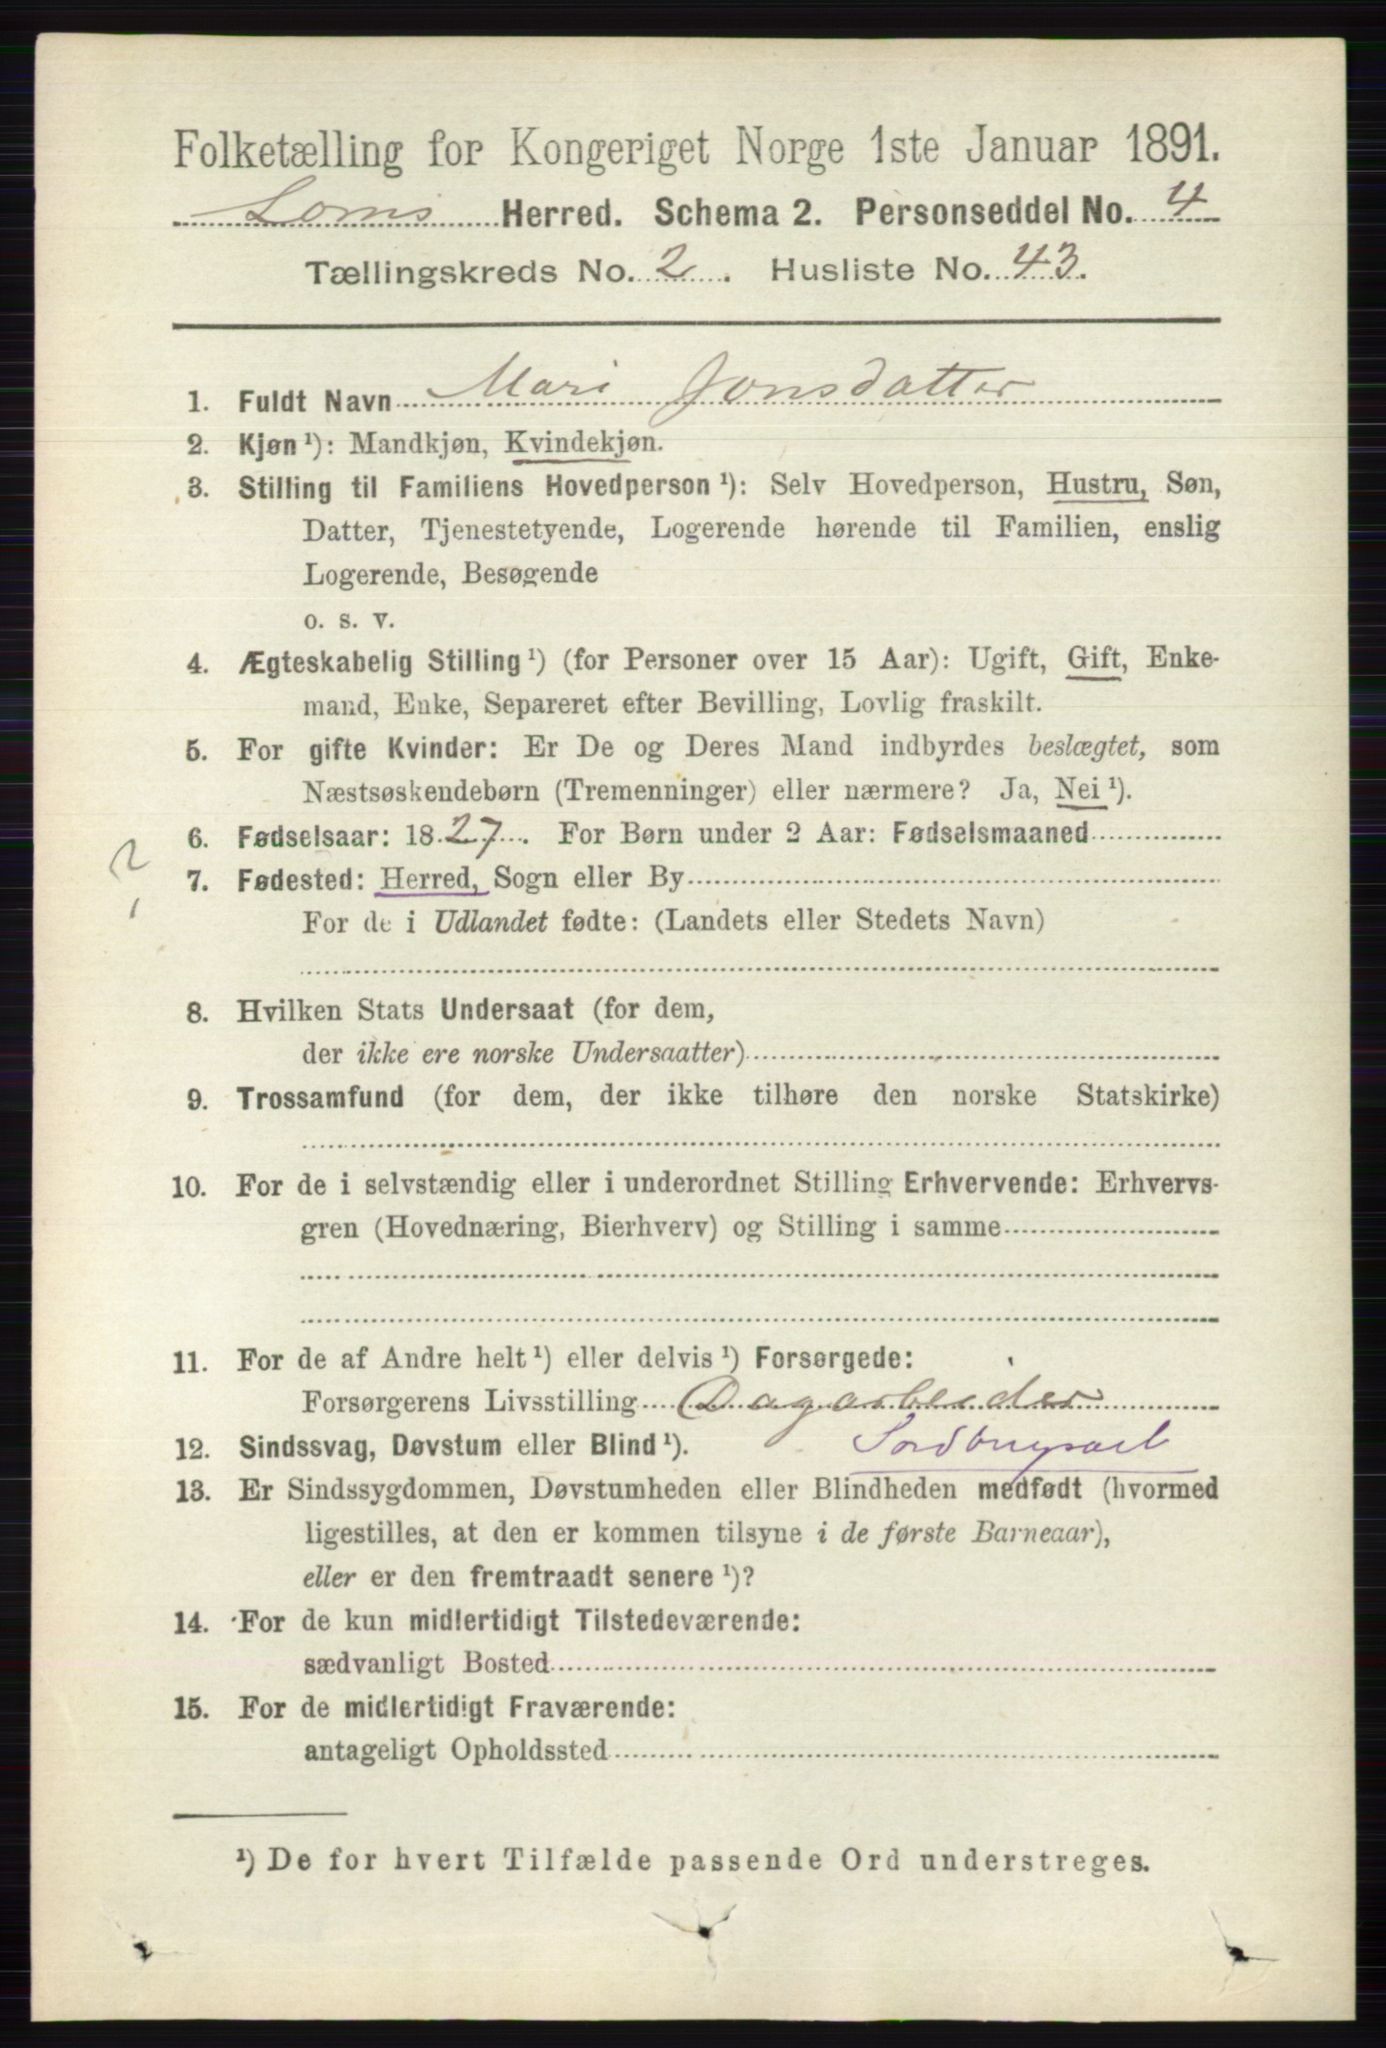 Folketælling for Kongeriget Norge 1ste Januar 1891.
Loms Herred. Schema 2. Personseddel No. 4
Tællingskreds No. 2. Husliste No. 43.
1. Fuldt Navn Mari Jonsdatter
2. Kjøn ¹): Mandkjøn, Kvindekjøn.
3. Stilling til Familiens Hovedperson ¹): Selv Hovedperson, Hustru, Søn,
Datter, Tjenestetyende, Logerende hørende til Familien, enslig
Logerende, Besøgende
o. s. v.
4. Ægteskabelig Stilling ¹) (for Personer over 15 Aar): Ugift, Gift, Enke-
mand, Enke, Separeret efter Bevilling, Lovlig fraskilt.
5. For gifte Kvinder: Er De og Deres Mand indbyrdes beslægtet, som
Næstsøskendebørn (Tremenninger) eller nærmere? Ja, Nei ¹).
6. Fødselsaar: 1827. For Børn under 2 Aar: Fødselsmaaned
?
7. Fødested: Herred, Sogn eller By
For de i Udlandet fødte: (Landets eller Stedets Navn)
8. Hvilken Stats Undersaat (for dem,
der ikke ere norske Undersaatter)
9. Trossamfund (for dem, der ikke tilhøre den norske Statskirke)
10. For de i selvstændig eller i underordnet Stilling Erhvervende: Erhvervs-
gren (Hovednæring, Bierhverv) og Stilling i samme
11. For de af Andre helt ¹) eller delvis ¹) Forsørgede:
Forsørgerens Livsstilling Dagarbeider
12. Sindssvag, Døvstum eller Blind ¹). Jordbrugsarb
13. Er Sindssygdommen, Døvstumheden eller Blindheden medfødt (hvormed
ligestilles, at den er kommen tilsyne i de første Barneaar),
eller er den fremtraadt senere ¹)?
14. For de kun midlertidigt Tilstedeværende:
sædvanligt Bosted
15. For de midlertidigt Fraværende:
antageligt Opholdssted
¹) De for hvert Tilfælde passende Ord understreges.